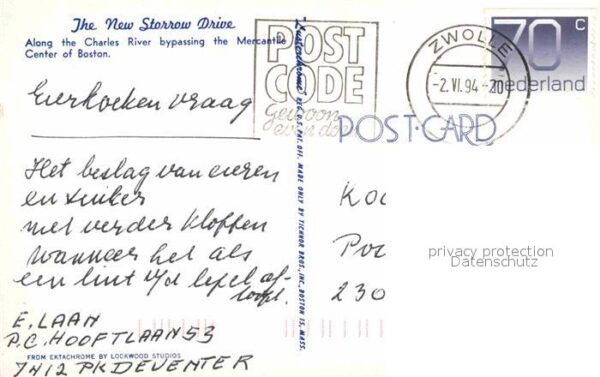 The New Storrow Drive
Along the Charles River bypassing the Mercantile
Center of Boston.
Eierkoeken vraag
Het beslag van eieren
en suiker
niet verder kloppen
wanneer het als
een lint v/d lepel af-
loopt.
E. LAAN
P.C. HOOFTLAAN 53
7412 PK DEVENTER
FROM EKTACHROME BY LOCKWOOD STUDIOS
"Lusterchrome" REG. U.S. PAT. OFF. MADE ONLY BY TICHNOR BROS., INC., BOSTON 15, MASS.
POST
CODE
Gewoon
even doen
ZWOLLE
-2.VI.94-20
70 c
nederland
POST-CARD
KOO
Po
230
privacy protection
Datenschutz